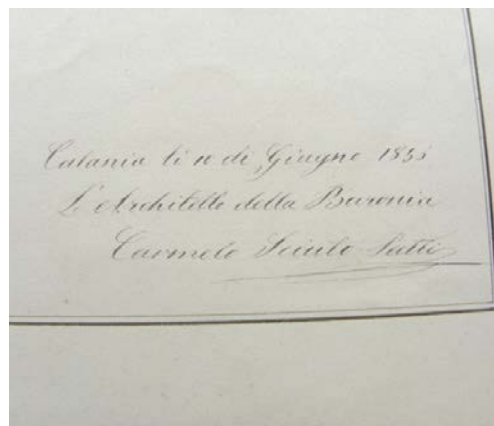 Catania li di Giugno 185
L'Architetto della Baronia
Carmelo Sciuto Patti